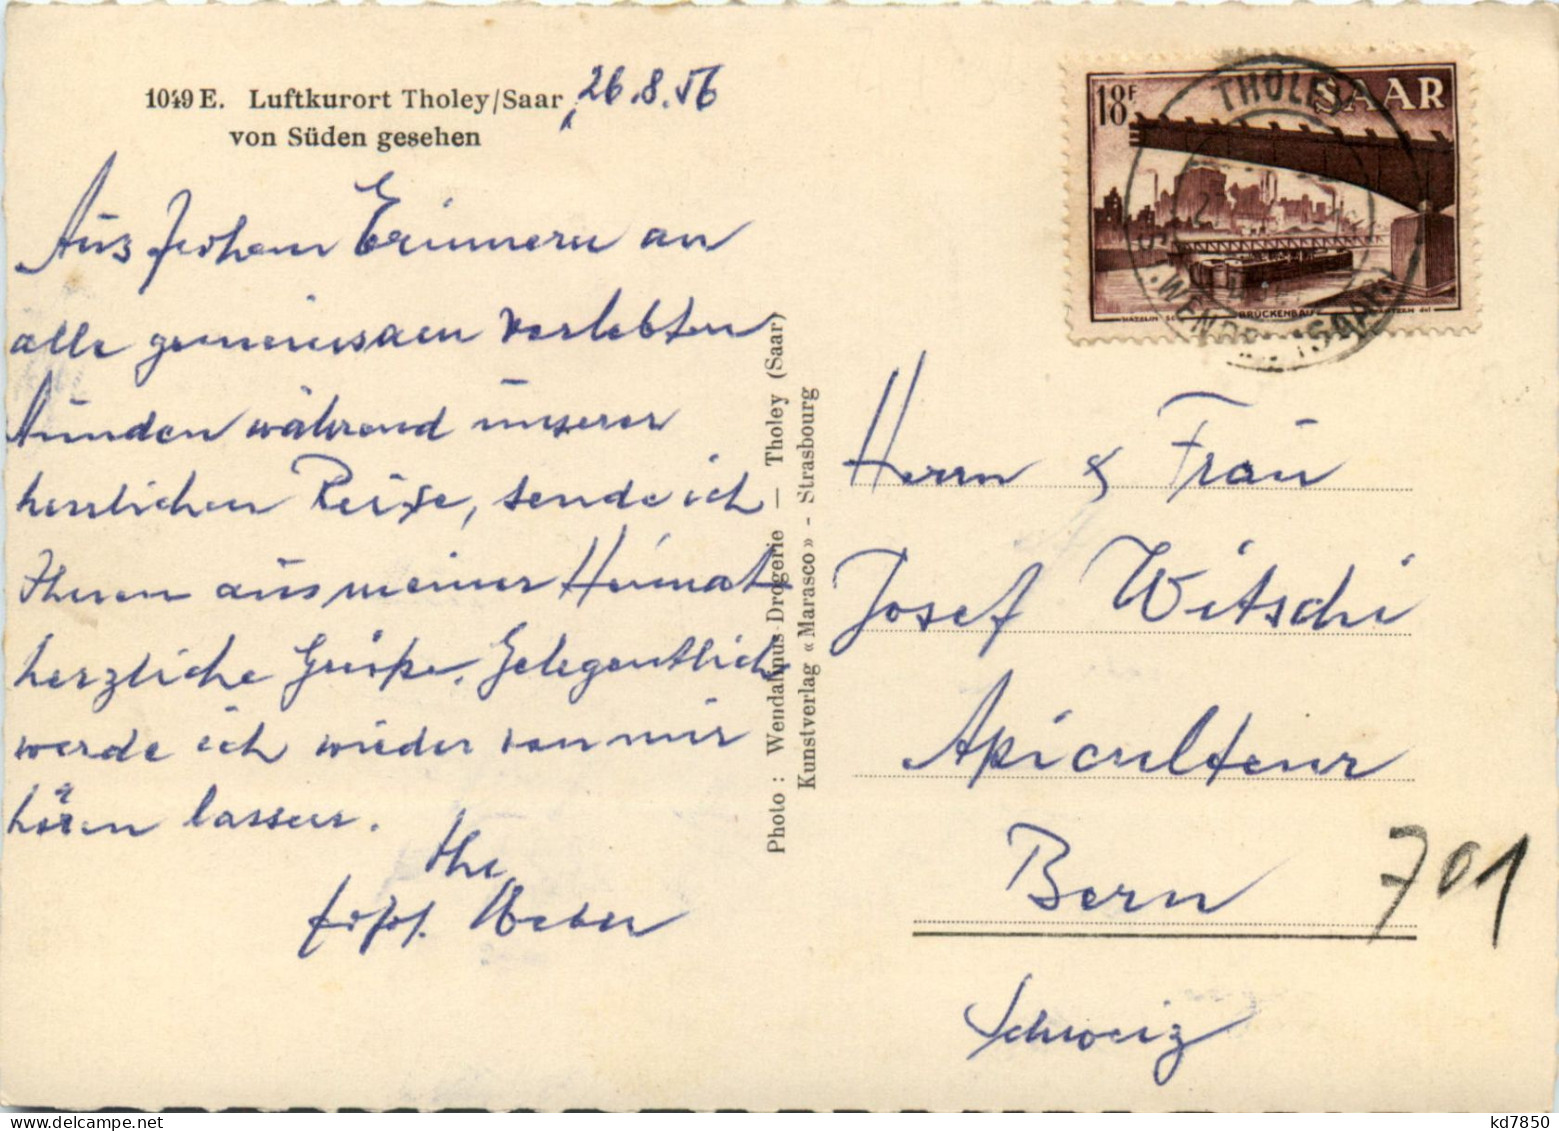 1049 E. Luftkurort Tholey/Saar, 26.8.56
von Süden gesehen
Aus frohem Erinnern an
alle gemeinsam verlebten
Stunden während unserer
herrlichen Reise, sende ich
Ihnen aus meiner Heimat
herzliche Grüße. Gelegentlich
werde ich wieder von mir
hören lassen.
Ihr
Weber
Photo : Wendalinus-Drogerie — Tholey (Saar)
Kunstverlag « Marasco » - Strasbourg
18F SAAR
BRÜCKENBAU
THOLEY
ST. WENDEL (SAAR)
Herrn & Frau
Josef Witschi
Apiculteur
Bern 701
Schweiz
kd7850